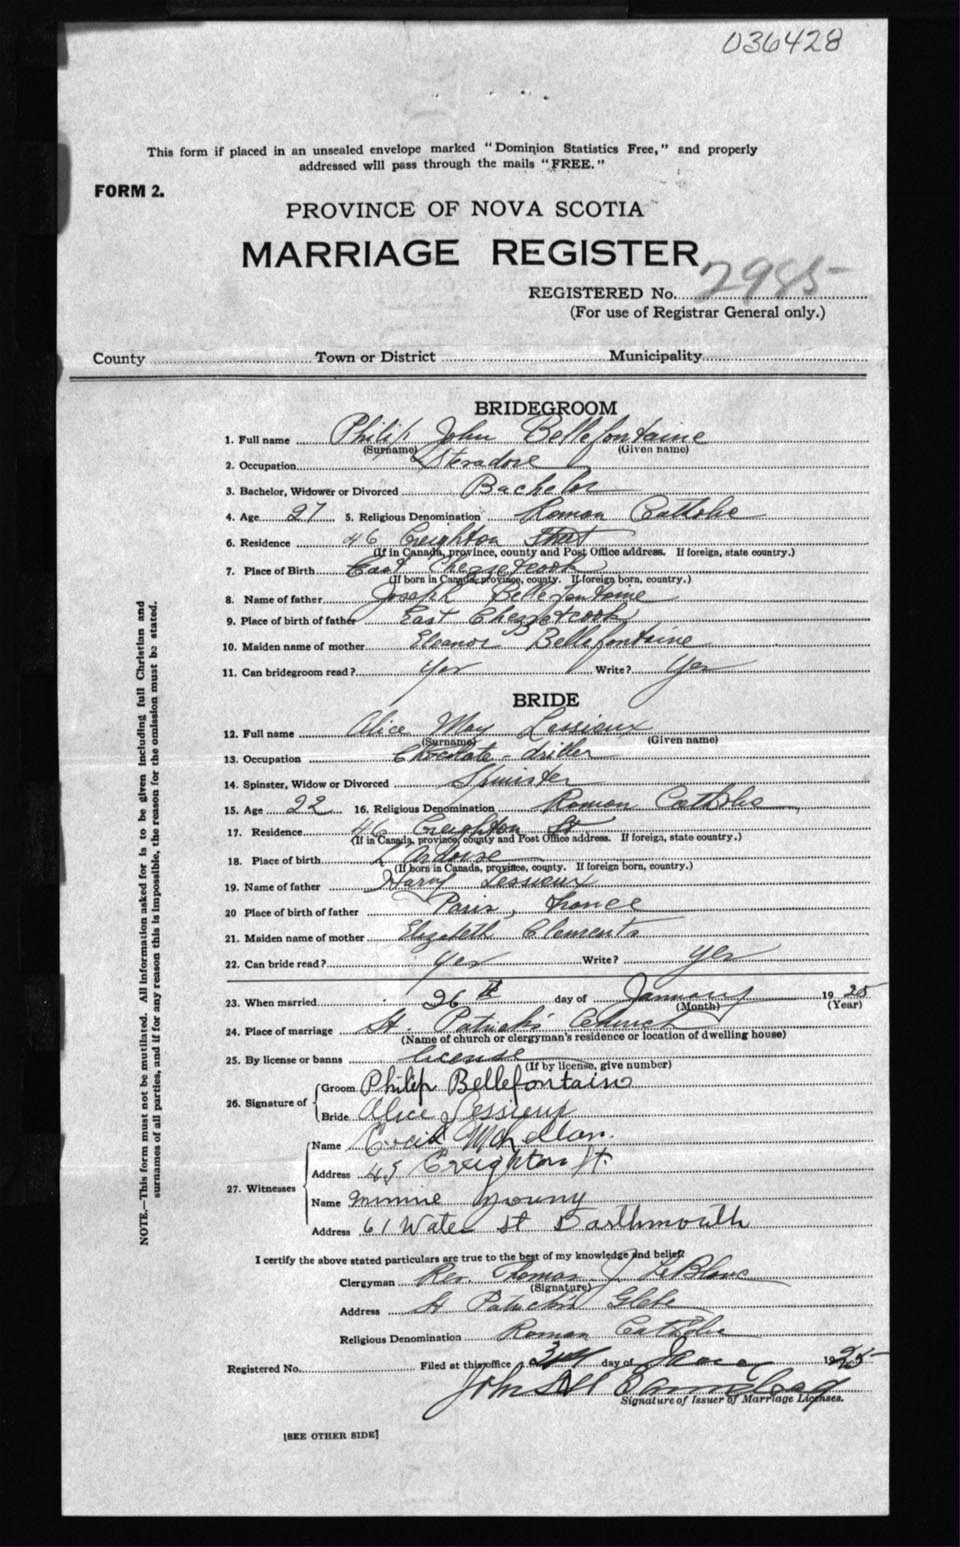 036428
This form if placed in an unsealed envelope marked "Dominion Statistics Free," and properly
addressed will pass through the mails "FREE."
FORM 2.
PROVINCE OF NOVA SCOTIA
MARRIAGE REGISTER
REGISTERED No. 2985
(For use of Registrar General only.)
County Town or District Municipality
BRIDEGROOM
1. Full name Philip John Bellefontaine
(Surname) (Given name)
2. Occupation Stevadore
3. Bachelor, Widower or Divorced Bachelor
4. Age 27 5. Religious Denomination Roman Catholic
6. Residence 46 Creighton Street
(If in Canada, province, county and Post Office address. If foreign, state country.)
7. Place of Birth East Chezzetcook
(If born in Canada, province, county. If foreign born, country.)
8. Name of father Joseph Bellefontaine
9. Place of birth of father East Chezzetcook
10. Maiden name of mother Eleanor Bellefontaine
11. Can bridegroom read? Yes Write? Yes
BRIDE
12. Full name Alice May Lessieux
(Surname) (Given name)
13. Occupation Chocolate
14. Spinster, Widow or Divorced Spinster
15. Age 22 16. Religious Denomination Roman Catholic
17. Residence 46 Creighton St
(If in Canada, province, county and Post Office address. If foreign, state country.)
18. Place of birth L'Ardoise
(If born in Canada, province, county. If foreign born, country.)
19. Name of father Harry Lessieux
20 Place of birth of father Paris, France
21. Maiden name of mother Elizabeth Clements
22. Can bride read? Yes Write? Yes
23. When married 26th day of January 1925
(Month) (Year)
24. Place of marriage St. Patrick's Church
(Name of church or clergyman's residence or location of dwelling house)
25. By license or banns license
(If by license, give number)
26. Signature of Groom Philip Bellefontaine
Bride Alice Lessieux
27. Witnesses Name McLellan.
Address 45 Creighton St.
Name Minnie Young
Address 61 Water St Dartmouth
I certify the above stated particulars are true to the best of my knowledge and belief:
Clergyman Rev. Thomas J. LeBlanc
(Signature)
Address St Patrick's Glebe
Religious Denomination Roman Catholic
Registered No. Filed at this office day of 1925
John
Signature of Issuer of Marriage Licenses.
[SEE OTHER SIDE]
NOTE.—This form must not be mutilated. All information asked for is to be given including full Christian and
surnames of all parties, and if for any reason this is impossible, the reason for the omission must be stated.